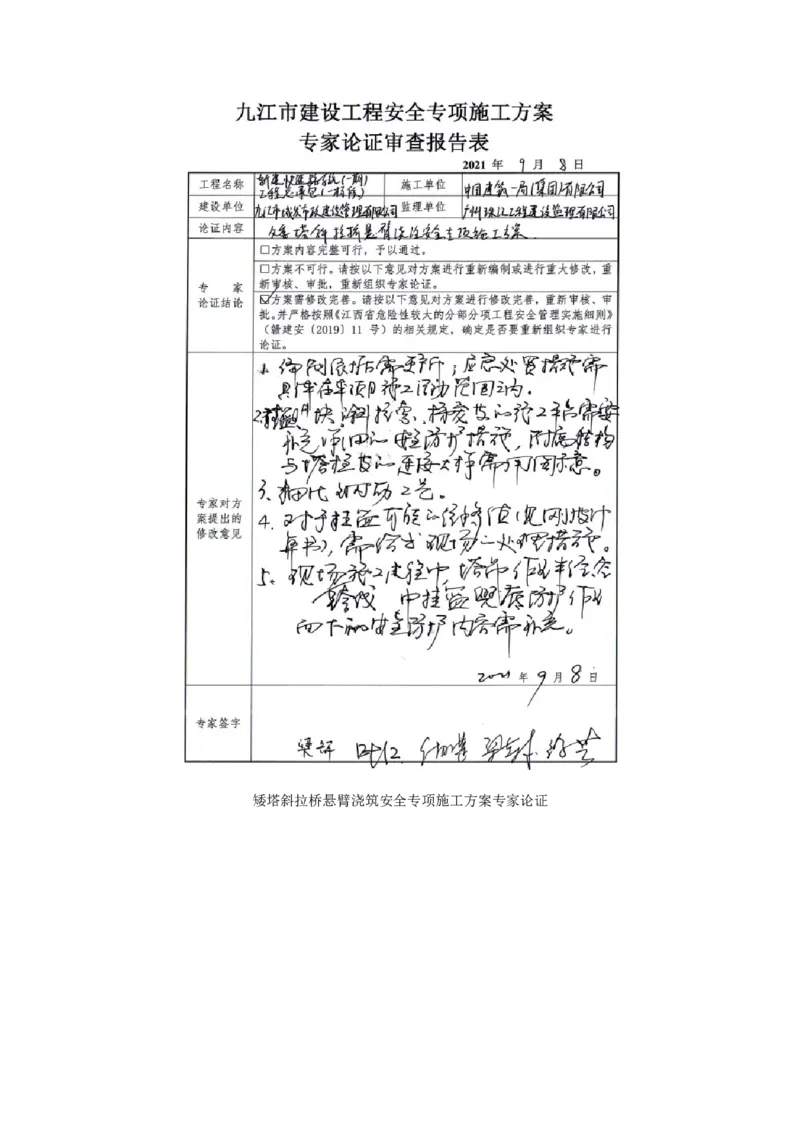 九江市建设工程安全专项施工方案
专家论证审查报告表
2021 年 9 月 8 日
工程名称 新建快速路系统(一期)
工程总承包(一标段)
施工单位 中国建筑一局(集团)有限公司
建设单位 九江市城发市政建设管理有限公司 监理单位 广州珠江工程建设监理有限公司
论证内容 矮塔斜拉桥悬臂浇筑安全专项施工方案.
□方案内容完整可行，予以通过。
□方案不可行。请按以下意见对方案进行重新编制或进行重大修改，重
新审核、审批，重新组织专家论证。
专 家
论证结论
☑方案需修改完善。请按以下意见对方案进行修改完善，重新审核、审
批。并严格按照《江西省危险性较大的分部分项工程安全管理实施细则》
（赣建安〔2019〕11 号）的相关规定，确定是否要重新组织专家进行
论证。
专家对方
案提出的
修改意见
1. 编制依据需更新；应急处置措施需
具体在本项目施工活动范围之内.
块、斜拉索、施工平台需
补充 安全防护措施，
与塔 的连接 需 。
3. 细化 工艺。
4. 对于挂篮
算书)，需给出现场 处理措施。
5. 现场施工过程中，塔吊作业
跨线 中挂篮 防护作业
向下的安全防护内容需补充。
2021 年 9 月 8 日
专家签字
矮塔斜拉桥悬臂浇筑安全专项施工方案专家论证